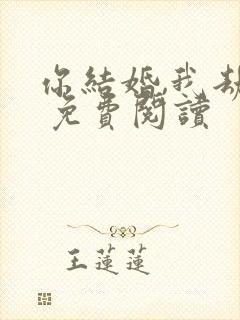 你結婚,我
免費閱讀
王蓮蓮